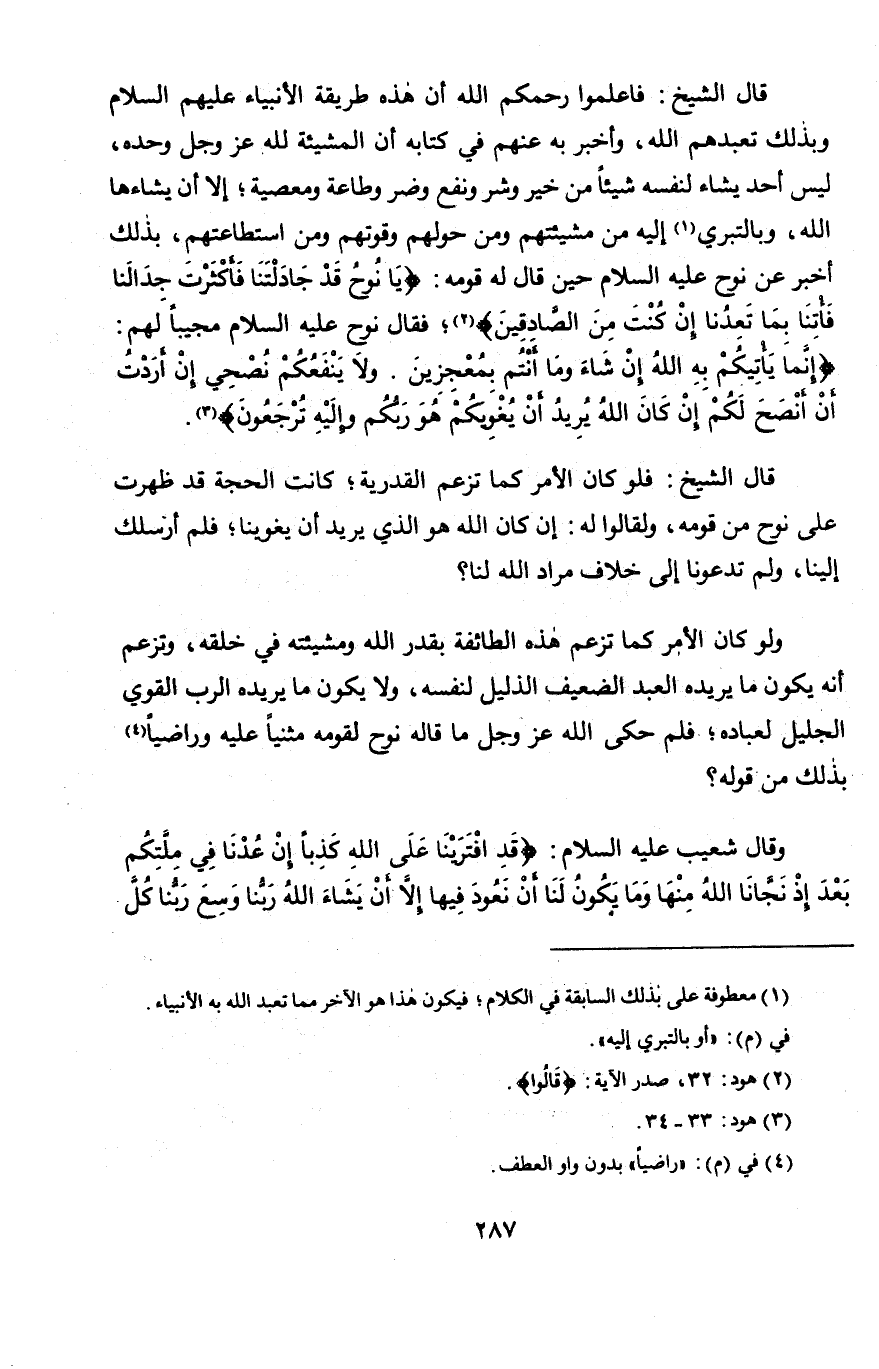 قال الشيخ : فاعلموا رحمكم الله أن هٰذه طريقة الأنبياء عليهم السلام
وبذٰلك تعبدهم الله، وأخبر به عنهم في كتابه أن المشيئة لله عز وجل وحده،
ليس أحد يشاء لنفسه شيئاً من خير وشر ونفع وضر وطاعة ومعصية؛ إلا أن يشاءها
الله، وبالتبري(١) إليه من مشيئتهم ومن حولهم وقوتهم ومن استطاعتهم، بذٰلك
أخبر عن نوح عليه السلام حين قال له قومه: ﴿يَا نُوحُ قَدْ جَادَلْتَنَا فَأَكْثَرْتَ جِدَالَنا
فَأْتِنَا بِمَا تَعِدُنا إِنْ كُنْتَ مِنَ الصَّادِقِينَ﴾(٢)؛ فقال نوح عليه السلام مجيباً لهم:
﴿إِنَّما يَأْتِيكُمْ بِهِ اللهُ إِنْ شَاءَ ومَا أَنْتُم بِمُعْجِزِينَ . ولَا يَنْفَعُكُمْ نُصْحِي إِنْ أَرَدْتُ
أَنْ أَنْصَحَ لَكُمْ إِنْ كَانَ اللهُ يُرِيدُ أَنْ يُغْوِيَكُمْ هُوَ رَبُّكُم وإِلَيْهِ تُرْجَعُونَ﴾(٣).
قال الشيخ : فلو كان الأمر كما تزعم القدرية؛ كانت الحجة قد ظهرت
على نوح من قومه، ولقالوا له: إن كان الله هو الذي يريد أن يغوينا؛ فلم أرسلك
إلينا، ولم تدعونا إلى خلاف مراد الله لنا؟
ولو كان الأمر كما تزعم هٰذه الطائفة بقدر الله ومشيئته في خلقه، وتزعم
أنه يكون ما يريده العبد الضعيف الذليل لنفسه، ولا يكون ما يريده الرب القوي
الجليل لعباده؛ فلم حكى الله عز وجل ما قاله نوح لقومه مثنياً عليه وراضياً(٤)
بذٰلك من قوله؟
وقال شعيب عليه السلام: ﴿قَدِ افْتَرَيْنَا عَلَى اللهِ كَذِباً إِنْ عُدْنَا فِي مِلَّتِكُم
بَعْدَ إِذْ نَجَّانَا اللهُ مِنْهَا وَمَا يَكُونُ لَنَا أَنْ نَعُودَ فِيها إِلَّا أَنْ يَشَاءَ اللهُ رَبُّنا وَسِعَ رَبُّنا كُلَّ
(١) معطوفة على بذٰلك السابقة في الكلام؛ فيكون هٰذا هو الآخر مما تعبد الله به الأنبياء.
في (م): «أو بالتبري إليه».
(٢) هود: ٣٢، صدر الآية: ﴿قَالُوا﴾.
(٣) هود: ٣٣ - ٣٤.
(٤) في (م): «راضياً» بدون واو العطف.
٢٨٧